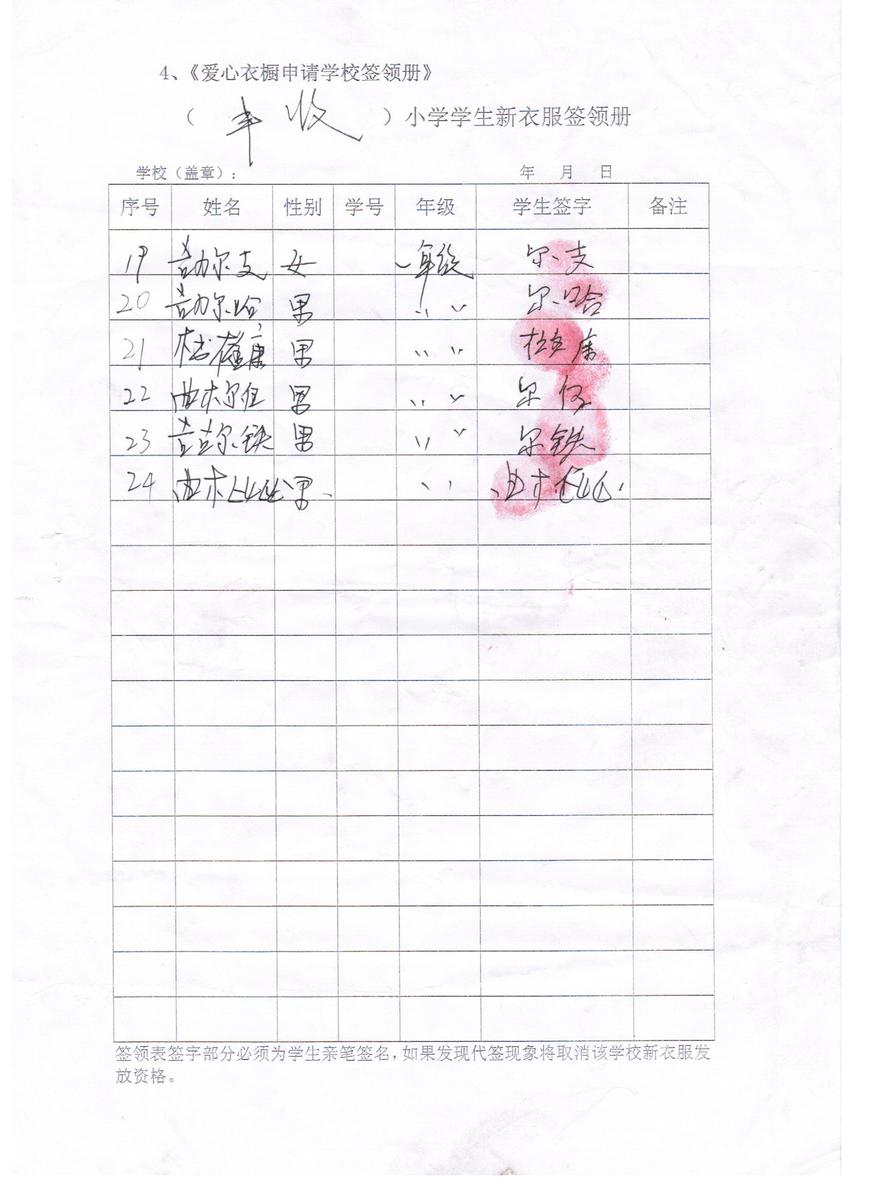 4、《爱心衣橱申请学校签领册》
（ 丰收 ）小学学生新衣服签领册
学校（盖章）： 年 月 日
序号 姓名 性别 学号 年级 学生签字 备注
19 吉力尔支 女 一年级 尔支
20 吉力尔哈 男 〃 〃 尔哈
21 康 男 〃 〃 康
22 曲木尔 男 〃 〃 尔
23 吉克尔铁 男 〃 〃 尔铁
24 曲木 男 〃 曲木
签领表签字部分必须为学生亲笔签名，如果发现代签现象将取消该学校新衣服发
放资格。